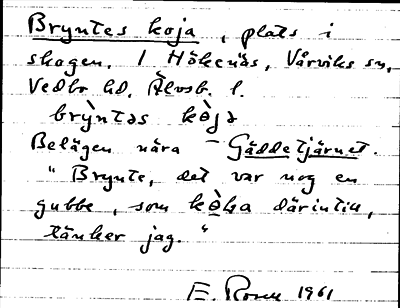 Bryntes koja, plats i
skogen. I Hökenäs, Vårviks sn,
Vedbo hd, Älvsb. l.
brỳntəs kòjə
Belägen nära Gäddetjärnet.
"Brynte, det var nog en
gubbe, som koka därintill,
tänker jag."
E. Rosen 1961